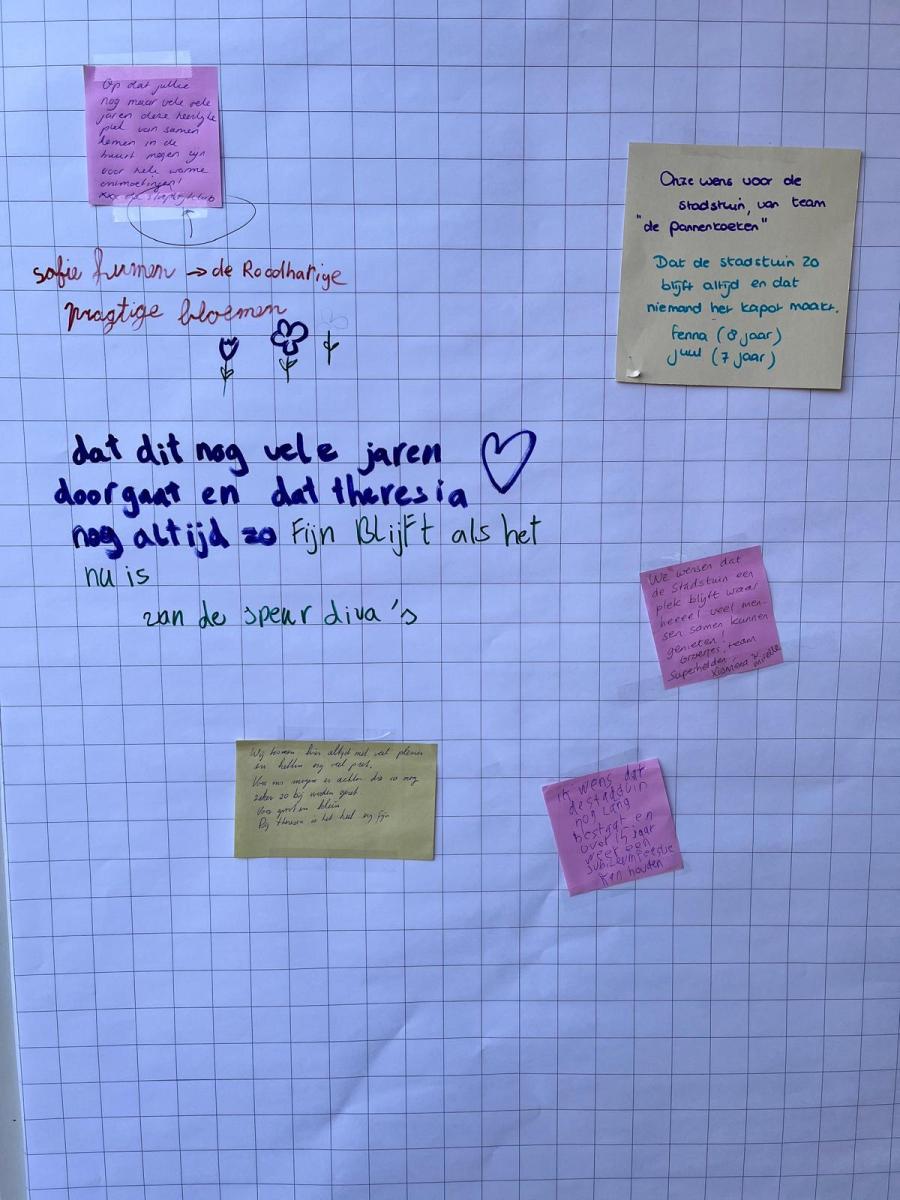 Op dat jullie
nog maar vele vele
jaren deze heerlijke
plek van samen
komen in de
buurt mogen zijn
voor hele warme
ontmoetingen!
sofie furmen → de Roodharige
pragtige bloemen
Onze wens voor de
stadstuin, van team
"de pannenkoeken"
Dat de stadstuin zo
blijft altijd en dat
niemand het kapot maakt.
Fenna (8 jaar)
Juul (7 jaar)
dat dit nog vele jaren
doorgaat en dat theresia
nog altijd zo Fijn Blijft als het
nu is
van de speur diva's
We wensen dat
de Stadstuin een
plek blijft waar
heeeel veel men-
sen samen kunnen
genieten!
Groetjes, team
Superhelden
Wij komen hier altijd met veel plezier
en hebben erg veel pret.
Voor ons mogen er achter die 10 nog
zeker 20 bij worden gezet
Voor groot en klein
Bij theresia is het heel erg fijn
ik wens dat
de stadstuin
nog lang
bestaat en
over 15 jaar
weer een
jubileumfeestje
kan houden